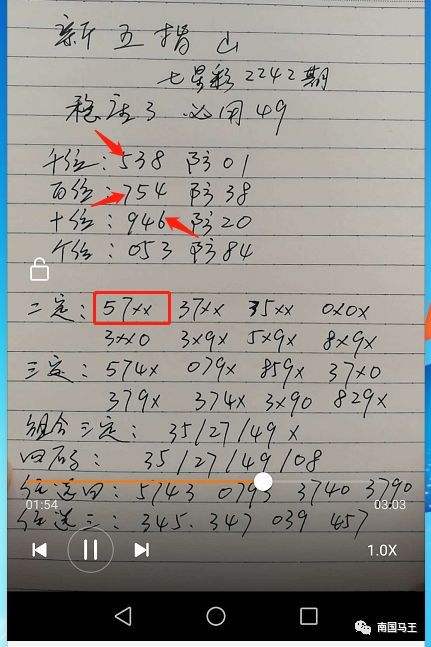 新五指山
七星彩2242期
稳胆3 必用49
千位:538 防01
百位:754 防38
十位:946 防20
个位:053 防84
二定:57xx 37xx 35xx 0x0x
3xx0 3x9x 5x9x 8x9x
三定:574x 079x 859x 37x0
379x 374x 3x90 829x
组合三定:35/27/49x
四码:35/27/49/08
任选四:5743 0793 3740 3790
01:54
03:03
任选三:345. 347 039 457
1.0X
南国马王